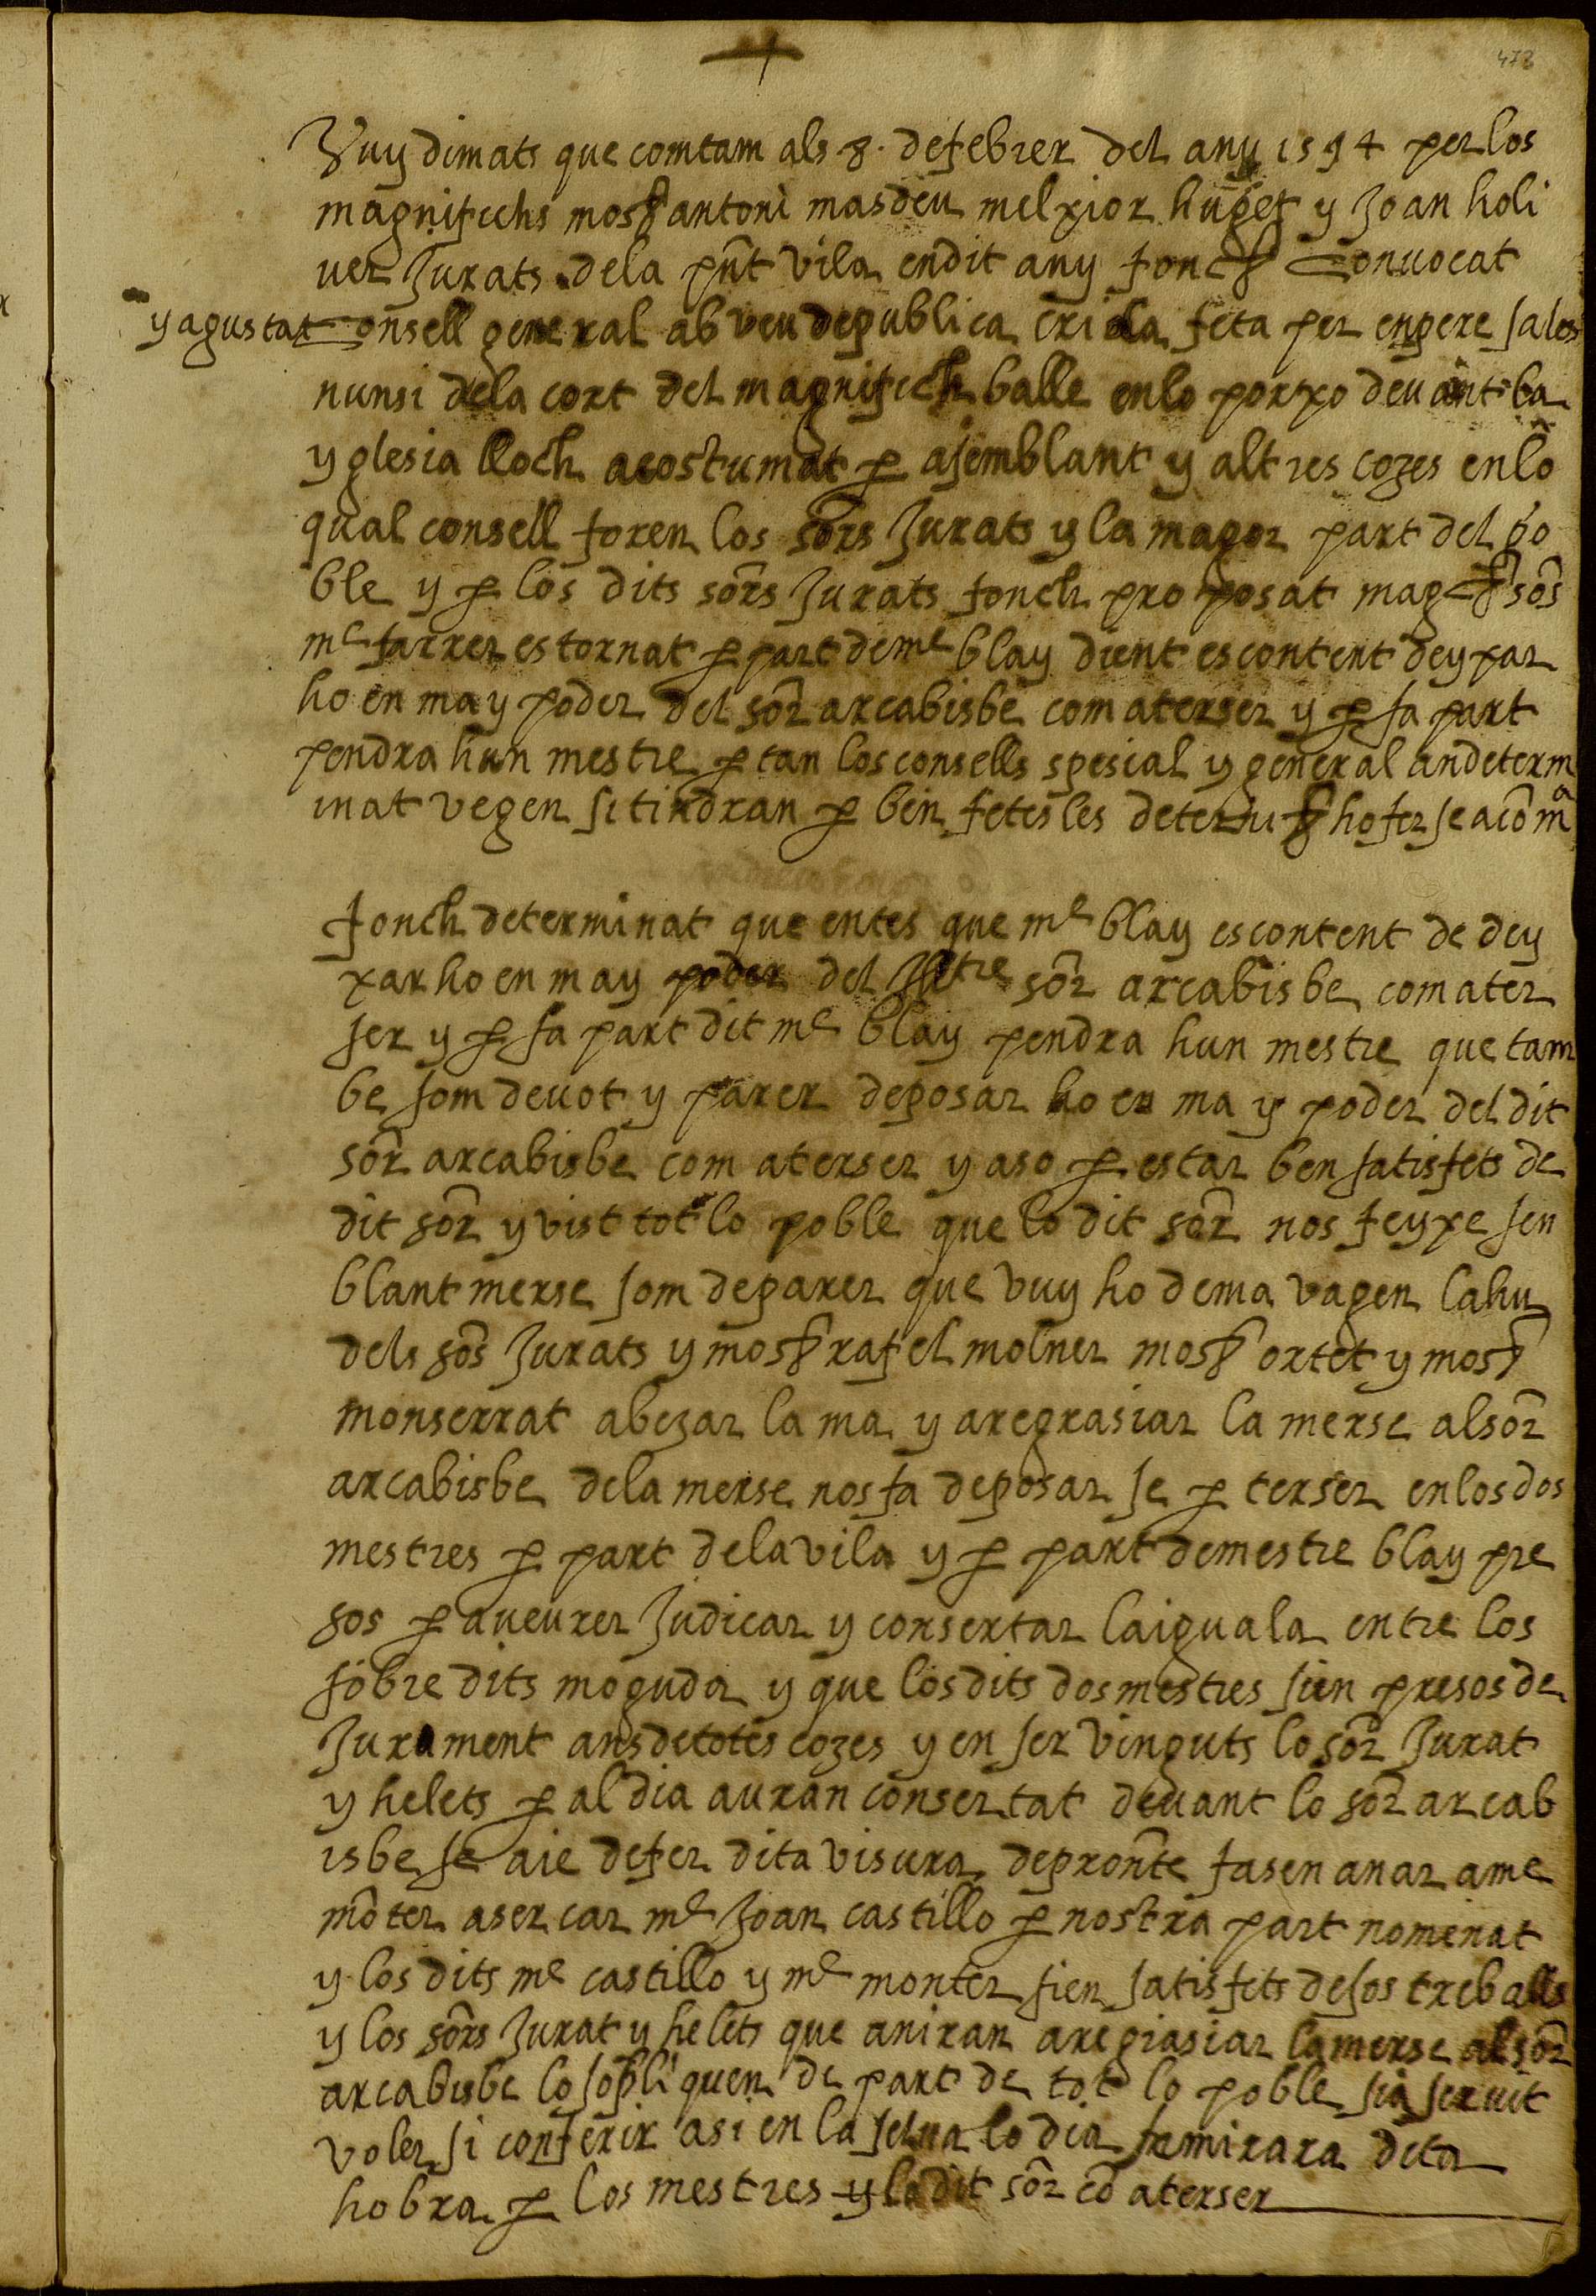 478
Vuy dimats que comtam als 8. de febrer del any 1594 per los
magnifichs moss antoni masdeu melxior huget y Joan holi
uer Jurats dela pnt vila endit any fonch convocat
y agustat consell general ab veu de publica crida feta per en pere sales
nunsi dela cort del magnifich balle enlo porxo devant la
yglesia lloch acostumat p asemblant y altres cozes enlo
qual consell foren los sors Jurats y la magor part del po
ble y p los dits sors Jurats fonch proposat magchs sos
me farrer es tornat p part de me blay dient es content deyxar
ho en ma y poder del sor arcabisbe com a terser y p sa part
pendra hun mestre p tan los consells spesial y general an determ
inat vegen si tindran p ben fetes les ho fer se a com
fonch determinat que entes que me blay es content de dey
xar ho en may poder del Illtre sor arcabisbe com a ter
ser y p sa part dit me blay pendra hun mestre que tam
be som de vot y parer de posar ho en ma y poder del dit
sor arcabisbe com a terser y aso p estar ben satisfets de
dit sor y vist tot lo poble que lo dit sor nos feyxe sen
blant merse som de parer que vuy ho dema vagen la hu
dels sos Jurats y moss rafel molner moss ortet y moss
monserrat a bezar la ma y a regrasiar la merse al sor
arcabisbe dela merse nos fa de posar se p terser en los dos
mestres p part dela vila y p part de mestre blay pre
sos p a veurer Judicar y consertar la iguala entre los
sobre dits moguda y que los dits dos mestres sien presos de
Jurament ans de totes cozes y en ser vinguts lo sor Jurat
y helets p al dia auran consertat devant lo sor arcab
isbe se aie de fer dita visura de pronte fasen anar a me
monter a sercar me Joan castillo p nostra part nomenat
y los dits me castillo y me monter sien satisfets de sos treballs
y los sors Jurat y helets que aniran a regrasiar la merse al sor
arcabisbe lo sopliquen de part de tot lo poble sia servit
voler si conferir asi en la selva lo dia se mirara dita
hobra p los mestres y lo dit sor co a terser